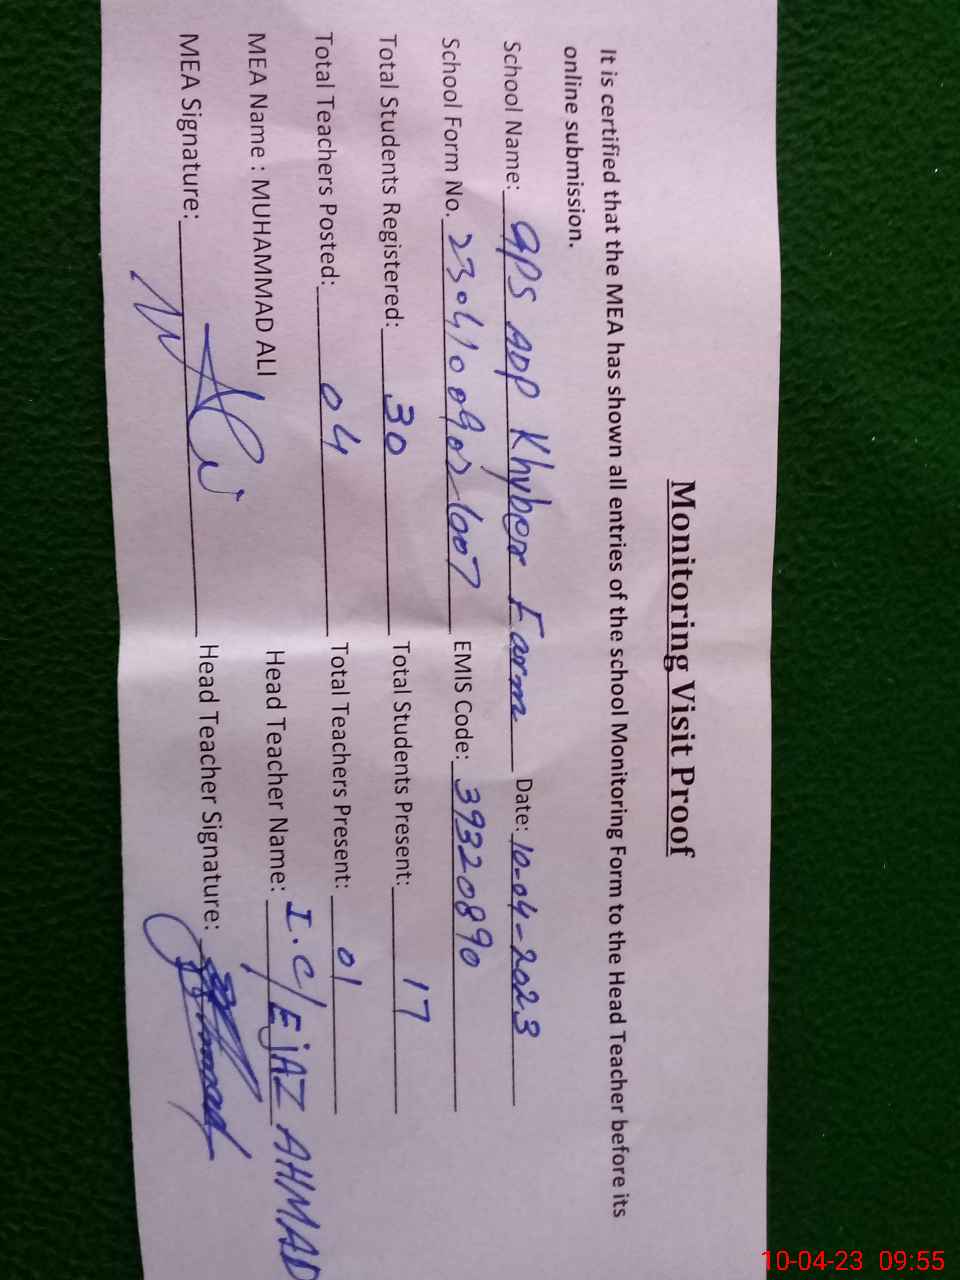 Monitoring Visit Proof
It is certified that the MEA has shown all entries of the school Monitoring Form to the Head Teacher before its
online submission.
School Name: GPS ADP Khyber Farm Date: 10-04-2023
School Form No. 23041009021007 EMIS Code: 39320890
Total Students Registered: 30 Total Students Present: 17
Total Teachers Posted: 04 Total Teachers Present: 01
MEA Name : MUHAMMAD ALI Head Teacher Name: I.C/EjAZ AHMAD
MEA Signature: Head Teacher Signature:
10-04-23 09:55